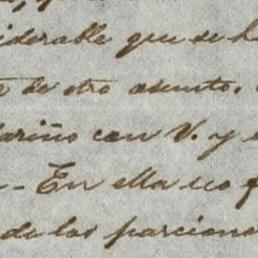 iderable que se h
de otro asunto.
ariño con V. y
- En ella no f
de las parciona